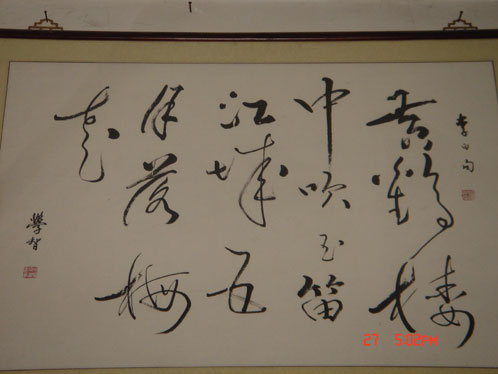 李白句
黄鶴樓
中吹玉笛
江城五
月落梅
花
學智
27 5:02PM